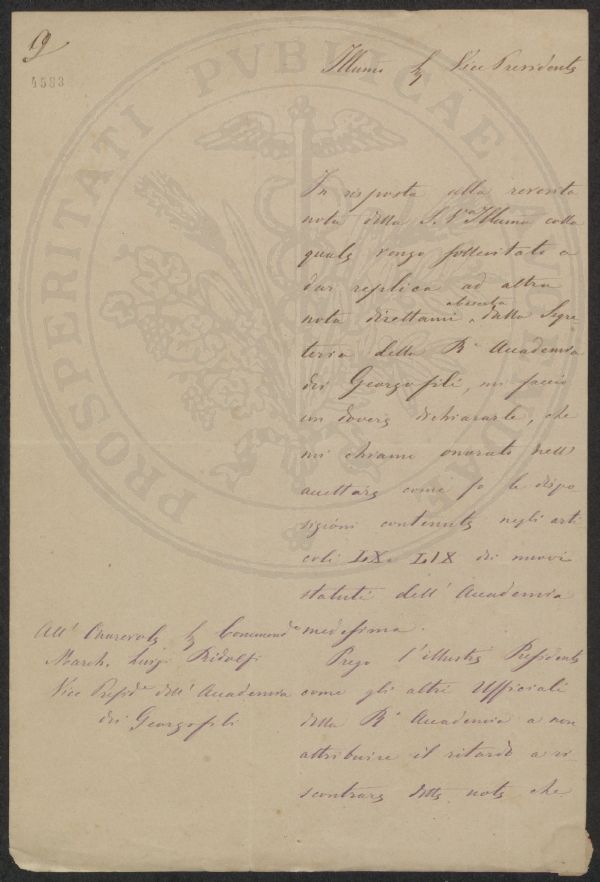 9
4593
Illumo Sig Vice Presidente
In risposta alla recente
nota della S. Va Illuma colla
quale vengo sollecitato a
dar replica ad altra
nota direttami
dalla Segre-
teria della Ra Accademia
dei Georgofili, mi faccio
un dovere dichiararle, che
mi chiamo onorato nell'
accettare come fo le dispo
sizioni contenute negli arti
coli LX e LIX dei nuovi
statuti dell' Accademia
medesima.
Prego l'illustre Presidente
come gli altri Ufficiali
della Ra Accademia a non
attribuire il ritardo a ri
scontrare detta nota che
All' Onorevole Sig Commende
March. Luigi Ridolfi
Vice Preside dell' Accademia
dei Georgofili
PROSPERITATI PVBLICAE